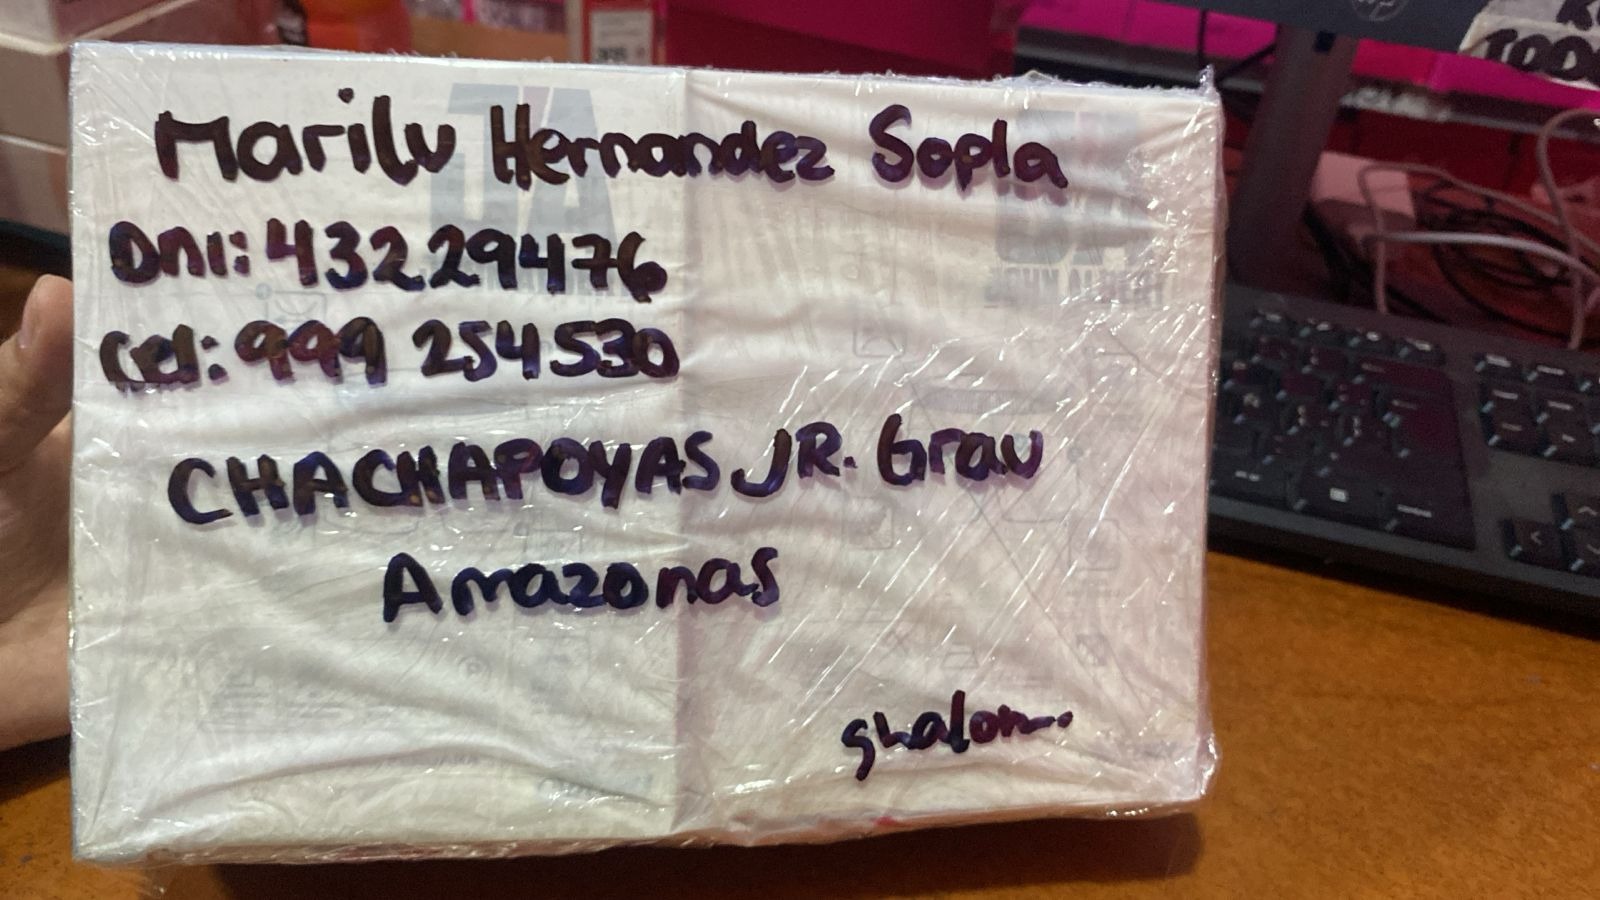 Marilu Hernandez Sopla
Dni: 43229476
Cel: 999 254530
CHACHAPOYAS JR. Grau
Amazonas
shalom